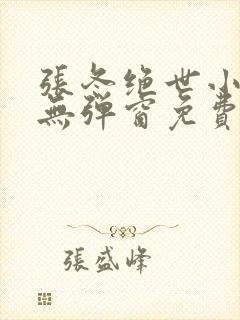 張冬絶世小
無彈窗免費
張盛峰